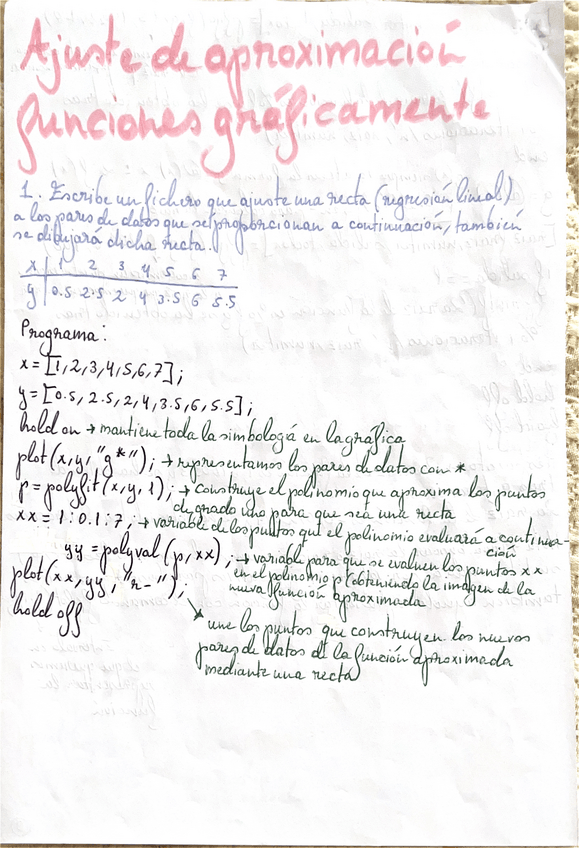 Ajuste de aproximación
funciones gráficamente
1. Escribe un fichero que ajuste una recta (regresión lineal)
a los pares de datos que se proporcionan a continuación, también
se dibujará dicha recta.
x | 1 2 3 4 5 6 7
y | 0.5 2.5 2 4 3.5 6 5.5
Programa:
x = [1,2,3,4,5,6,7];
y = [0.5, 2.5, 2, 4, 3.5, 6, 5.5];
hold on → mantiene toda la simbología en la gráfica
plot(x,y,"g*"); → representamos los pares de datos con *
p = polyfit(x,y,1); → construye el polinomio que aproxima los puntos
de grado uno para que sea una recta
xx = 1:0.1:7; → variable de los puntos que el polinomio evaluará a continua-
ción
yy = polyval(p,xx); → variable para que se evaluen los puntos xx
en el polinomio p (obteniendo la imagen de la
nueva función aproximada
plot(xx,yy,"r-");
hold off
une los puntos que construyen los nuevos
pares de datos de la función aproximada
mediante una recta